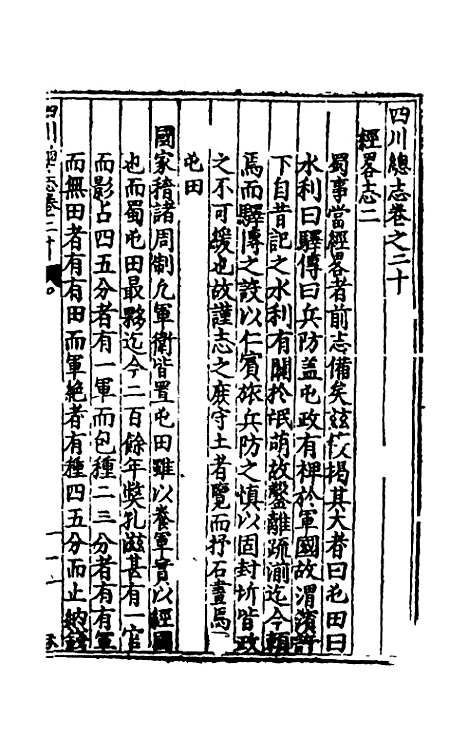 四川總志卷之二十
經畧志二
蜀事當經畧者前志備矣茲又揭其大者曰屯田曰
水利曰驛傳曰兵防盖屯政有裨於軍國故渭濱許
下自昔記之水利有關於氓萌故鑿離疏湔迄今賴
焉而驛傳之設以仁賓旅兵防之慎以固封圻皆政
之不可援也故謹志之庶守土者覽而抒石畫焉
屯田
國家稽諸周制九軍衛皆置屯田雖以養軍實以經國
也而蜀屯田最夥迄今二百餘年獘孔滋甚有一官
而影占四五分者有一軍而包種二三分者有有軍
而無田者有有田而軍絶者有種四五分而止納
四川總志卷二十